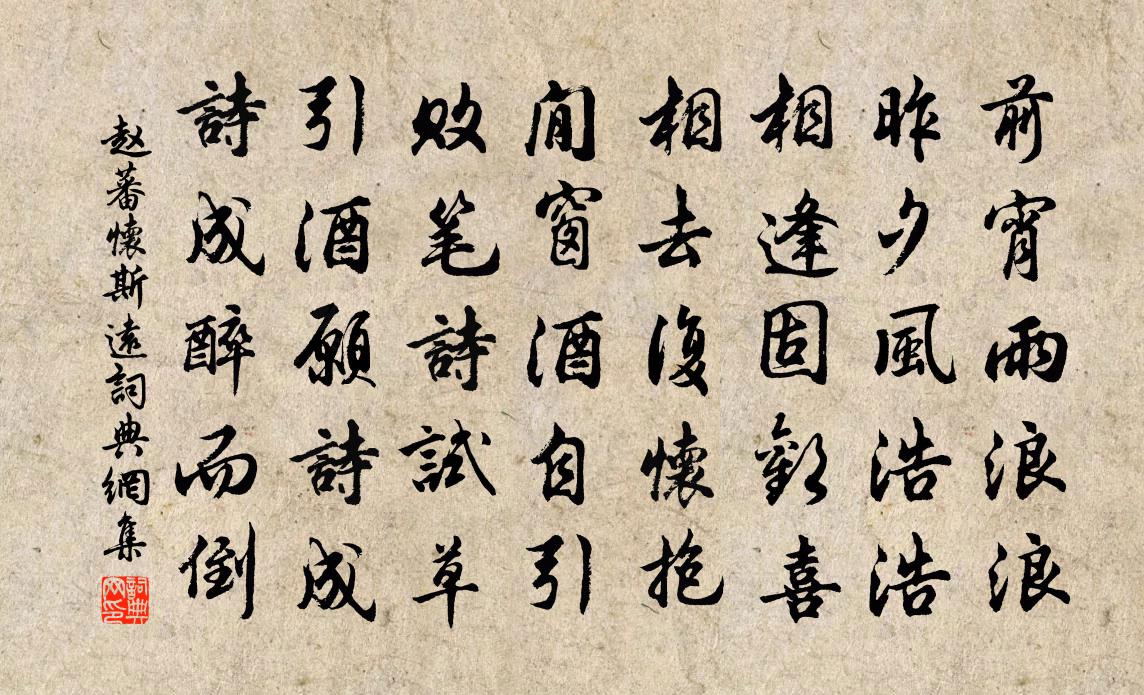 前宵雨浪浪
昨夕風浩浩
相逢固歡喜
相去復懷抱
閒窗酒自引
敗笔詩試草
引酒願詩成
詩成醉而倒
赵蕃懷斯遠詞典網集
詞典网印